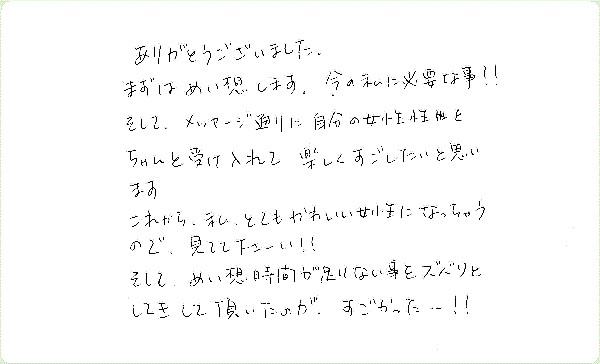 ありがとうございました。
まずは めい想 します。今の私に必要な事!!
そして、メッセージ通りに 自分の女性性性をと
ちゃんと受け入れて 楽しくすごしたいと思い
ます
これから、私、とてもかわいい女性になっちゃう
ので、見てて下さーい!!
そして、めい想時間が足りない事をズバリと
して頂いたのが、すごかった…!!